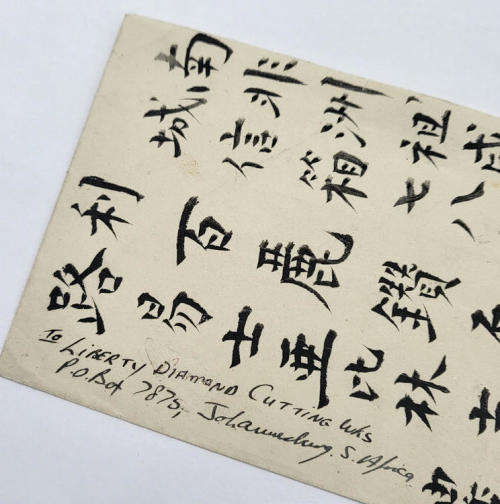 南非洲祖
城信箱七八
利百麗鑽
路易士亞比林
To LIBERTY DIAMOND CUTTING WKS
P.O. Box 7875, Johannesburg. S. Africa